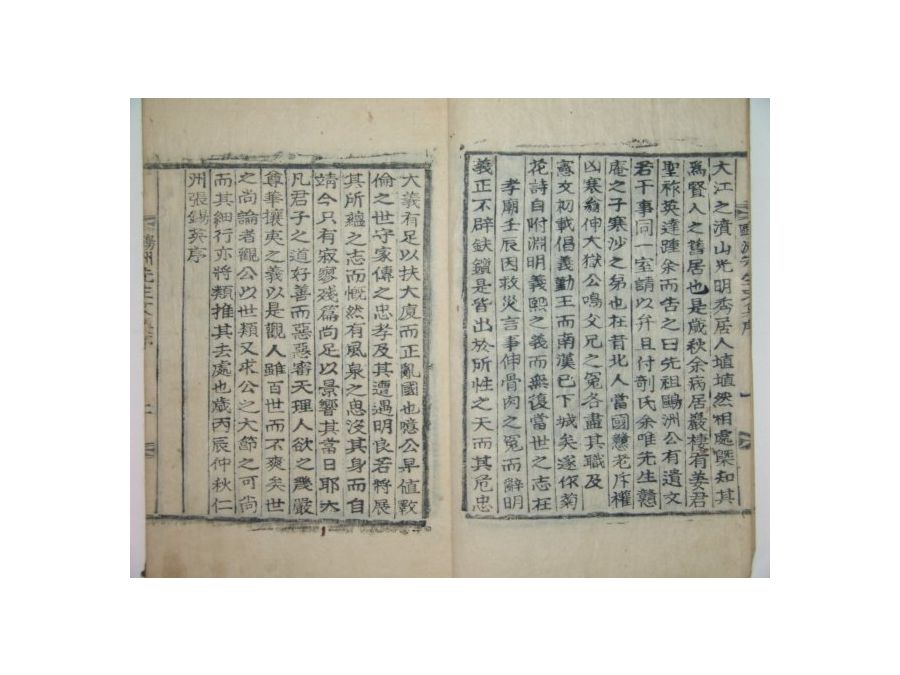 大江之濆山光明秀居人埴埴然相處槩知其
爲賢人之舊居也是歲秋余病居巖棲有姜君
聖祚英達踵余而告之曰先祖鷗洲公有遺文
若干事同一室請以弁且付剞氏余唯先生戇
庵之子寒沙之弟也在昔北人當國戀老斥權
凶寒翁伸大獄公鳴父兄之冤各盡其職及
憲文初載倡義勤王而南漢已下城矣遂作菊
花詩自附淵明義熙之義而無復當世之志在
孝廟壬辰因救災言事伸骨肉之冤而辭明
義正不辟鈇鑕是皆出於所性之天而其危忠
大義有足以扶大廈而正亂國也噫公早値斁
倫之世守家傳之忠孝及其遭遇明良若將展
其所蘊之志而慨然有風泉之思沒其身而自
靖今只有寂寥殘篇尚足以景響其當日耶大
凡君子之道好善而惡惡審天理人欲之幾嚴
尊華攘夷之義以是觀人雖百世而不爽矣世
之尚論者觀公以世類又求公之大節之可尚
而其細行亦將類推其去處也歲丙辰仲秋仁
州張錫英序